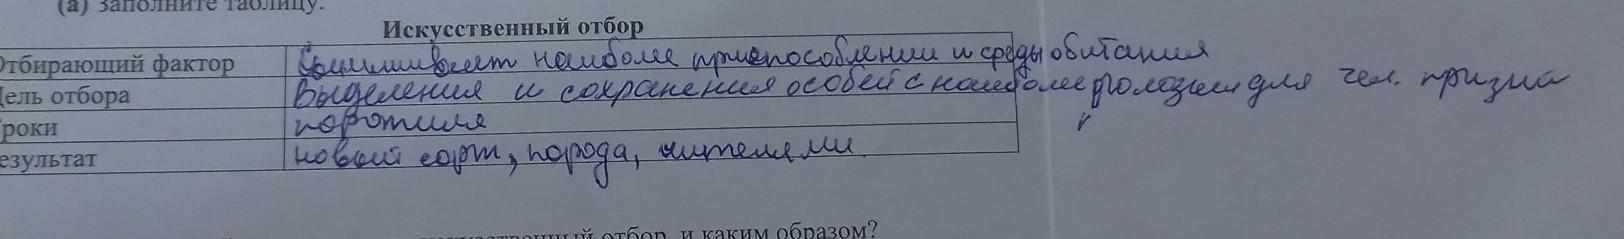 (а) Заполните таблицу.
Искусственный отбор
Отбирающий фактор наиболее приспособлении и среды обитания
Цель отбора Выделения и сохранения особей с наиболее полезным для чел. призна
роки
езультат новый сорт, порода,
отбор, и каким образом?